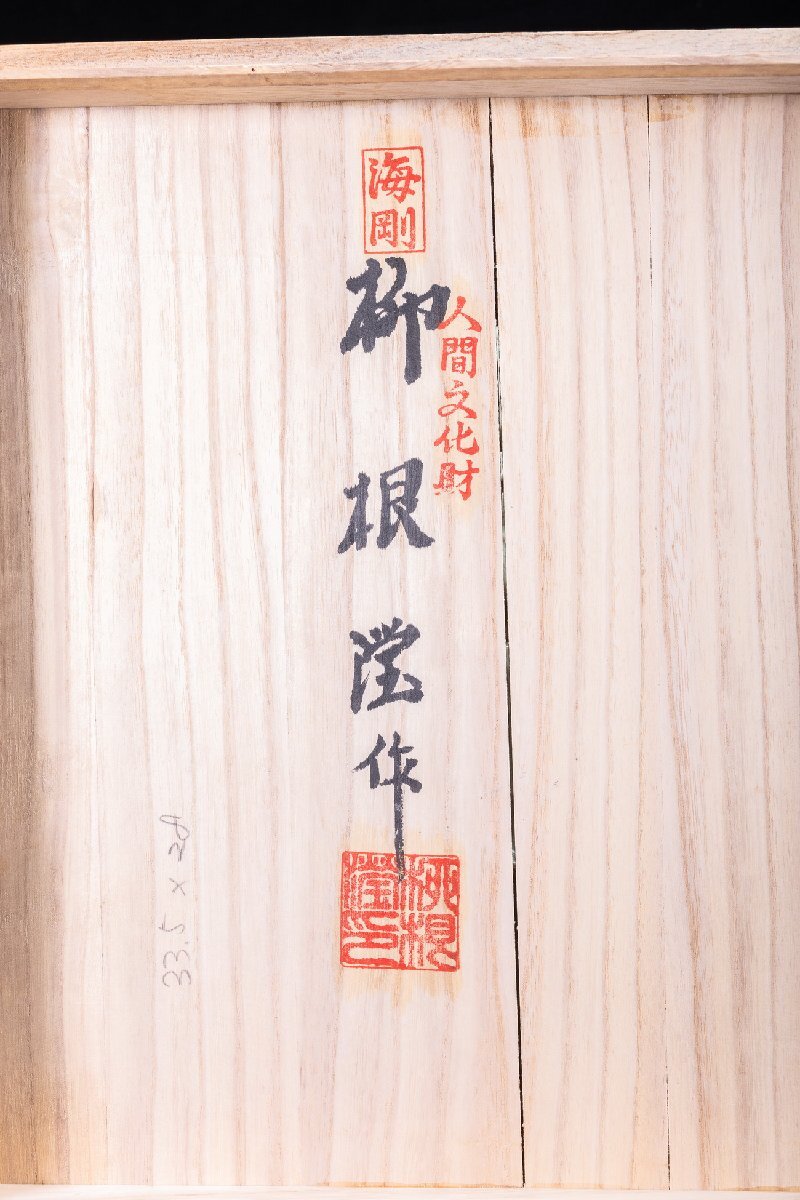 海剛
人間文化財
柳根瀅作
柳根瀅印
33.5 x 28